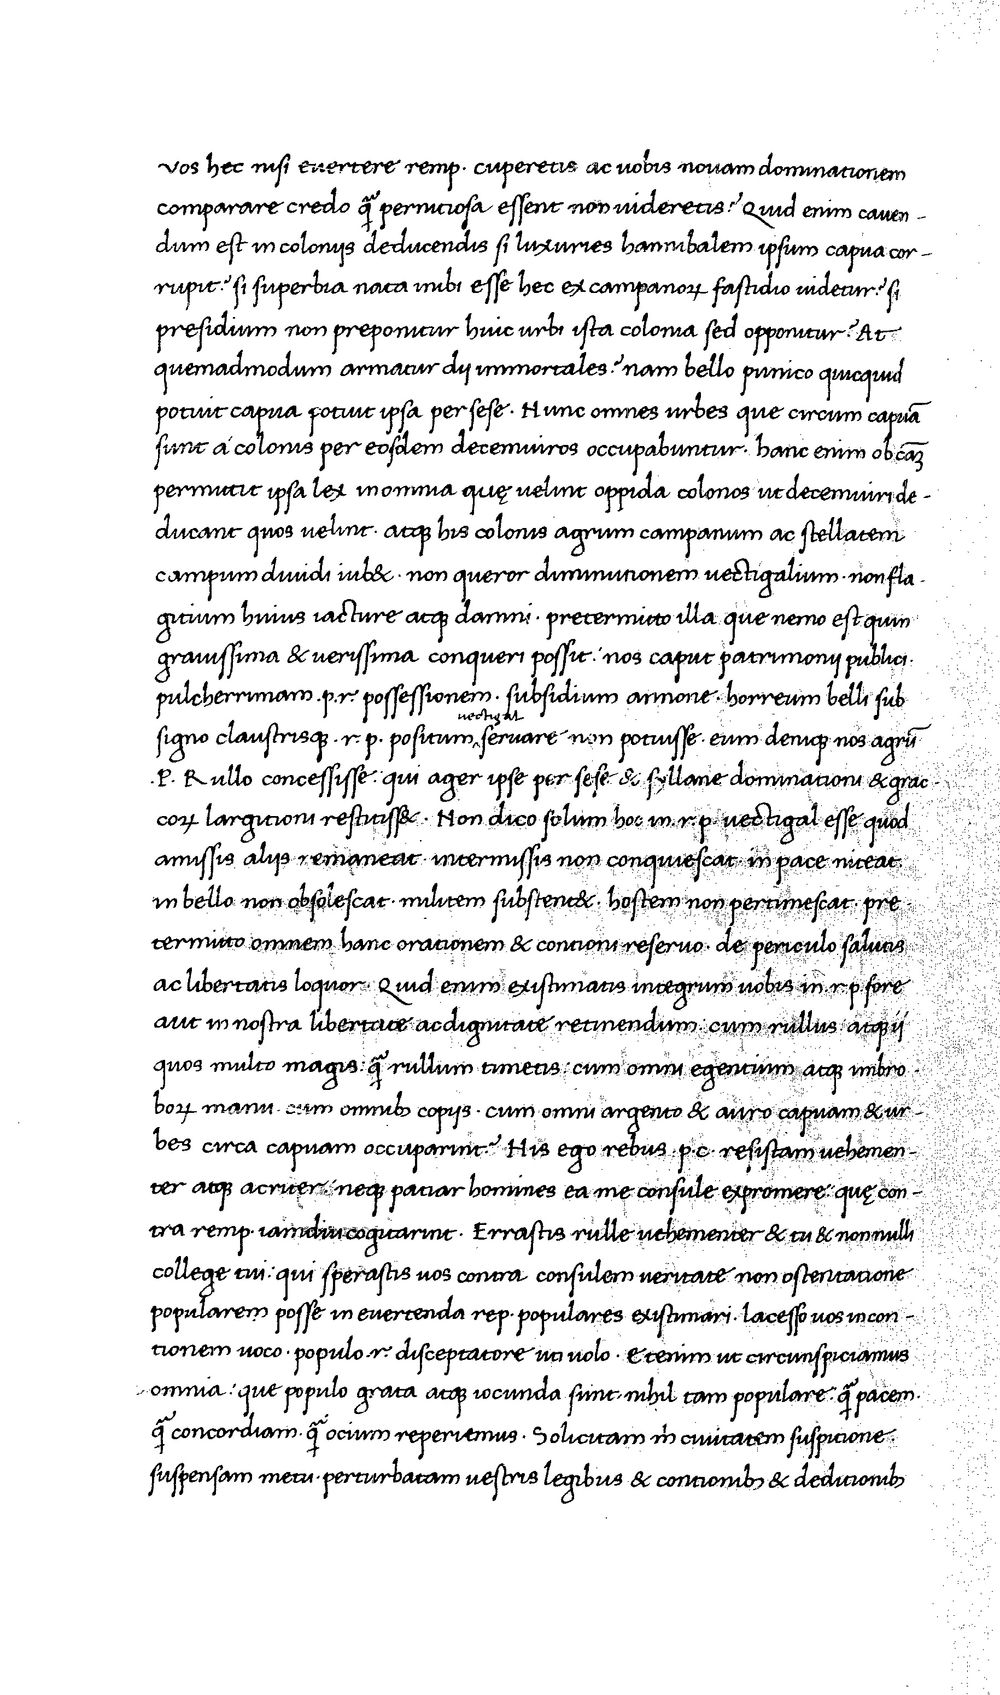 vos hec nisi euertere remp. cuperetis ac uobis nouam dominationem
comparare credo q̃ꝫ pernitiosa essent non uideretis? Quid enim cauen-
dum est in colonijs deducendis si luxuries hannibalem ipsum capua cor-
rupit? si superbia nata inibi esse hec ex campanoꝝ fastidio uidetur? si
presidium non preponitur huic urbi ista colonia sed opponitur? At
quemadmodum armatur dij immortales? nam bello punico quicquid
potuit capua potuit ipsa per sese. Nunc omnes urbes que circum capuā
sunt á colonis per eosdem decemuiros occupabuntur. hanc enim ob cāꝫ
permittit ipsa lex in omnia quę uelint oppida colonos ut decemuiri de-
ducant quos uelint. atqꝫ his colonis agrum campanum ac stellatem
campum diuidi iub&. non queror diminutionem uectigalium. non fla-
gitium huius iacture atqꝫ damni. pretermitto illa que nemo est quin
grauissima & uerissima conqueri possit: nos caput patrimonij publici.
pulcherrimam .p.r. possessionem. subsidium annone. horreum belli sub
signo claustrisqꝫ .r.p. positum uectigal seruare non potuisse. eum deniqꝫ nos agrū
.P. Rullo concessisse: qui ager ipse per sese & syllane dominationi & grac-
coꝝ largitioni restitiss&. Non dico solum hoc in .r.p. uectigal esse quod
amissis alijs remaneat. intermissis non conquiescat. in pace niteat.
in bello non obsolescat. militem substent&. hostem non pertimescat. pre-
termitto omnem hanc orationem & contioni reseruo. de periculo salutis
ac libertatis loquor. Quid enim existimatis integrum uobis in .r.p. fore
aut in nostra libertate ac dignitate retinendum: cum rullus atqꝫ ij
quos multo magis: q̃ꝫ rullum timetis: cum omni egentium atqꝫ imbro-
boꝝ manu. cum omnibꝫ copijs. cum omni argento & auro capuam & ur-
bes circa capuam occuparint? His ego rebus .p.c. resistam uehemen-
ter atqꝫ acriter: neqꝫ patiar homines ea me consule expromere: quę con-
tra remp. iamdiu cogitarint. Errastis rulle uehementer & tu & nonnulli
college tui: qui sperastis uos contra consulem ueritate non ostentatione
popularem posse in euertenda rep. populares existimari. lacesso uos in con-
tionem uoco. populo .r. disceptatore uti uolo. Etenim ut circunspiciamus
omnia: que populo grata atqꝫ iocunda sunt. nihil tam populare: q̃ꝫ pacem.
q̃ꝫ concordiam. q̃ꝫ ocium reperiemus. Solicitam m̄ ciuitatem suspitione.
suspensam metu. perturbatam uestris legibus & contionibꝫ & deductionibꝫ